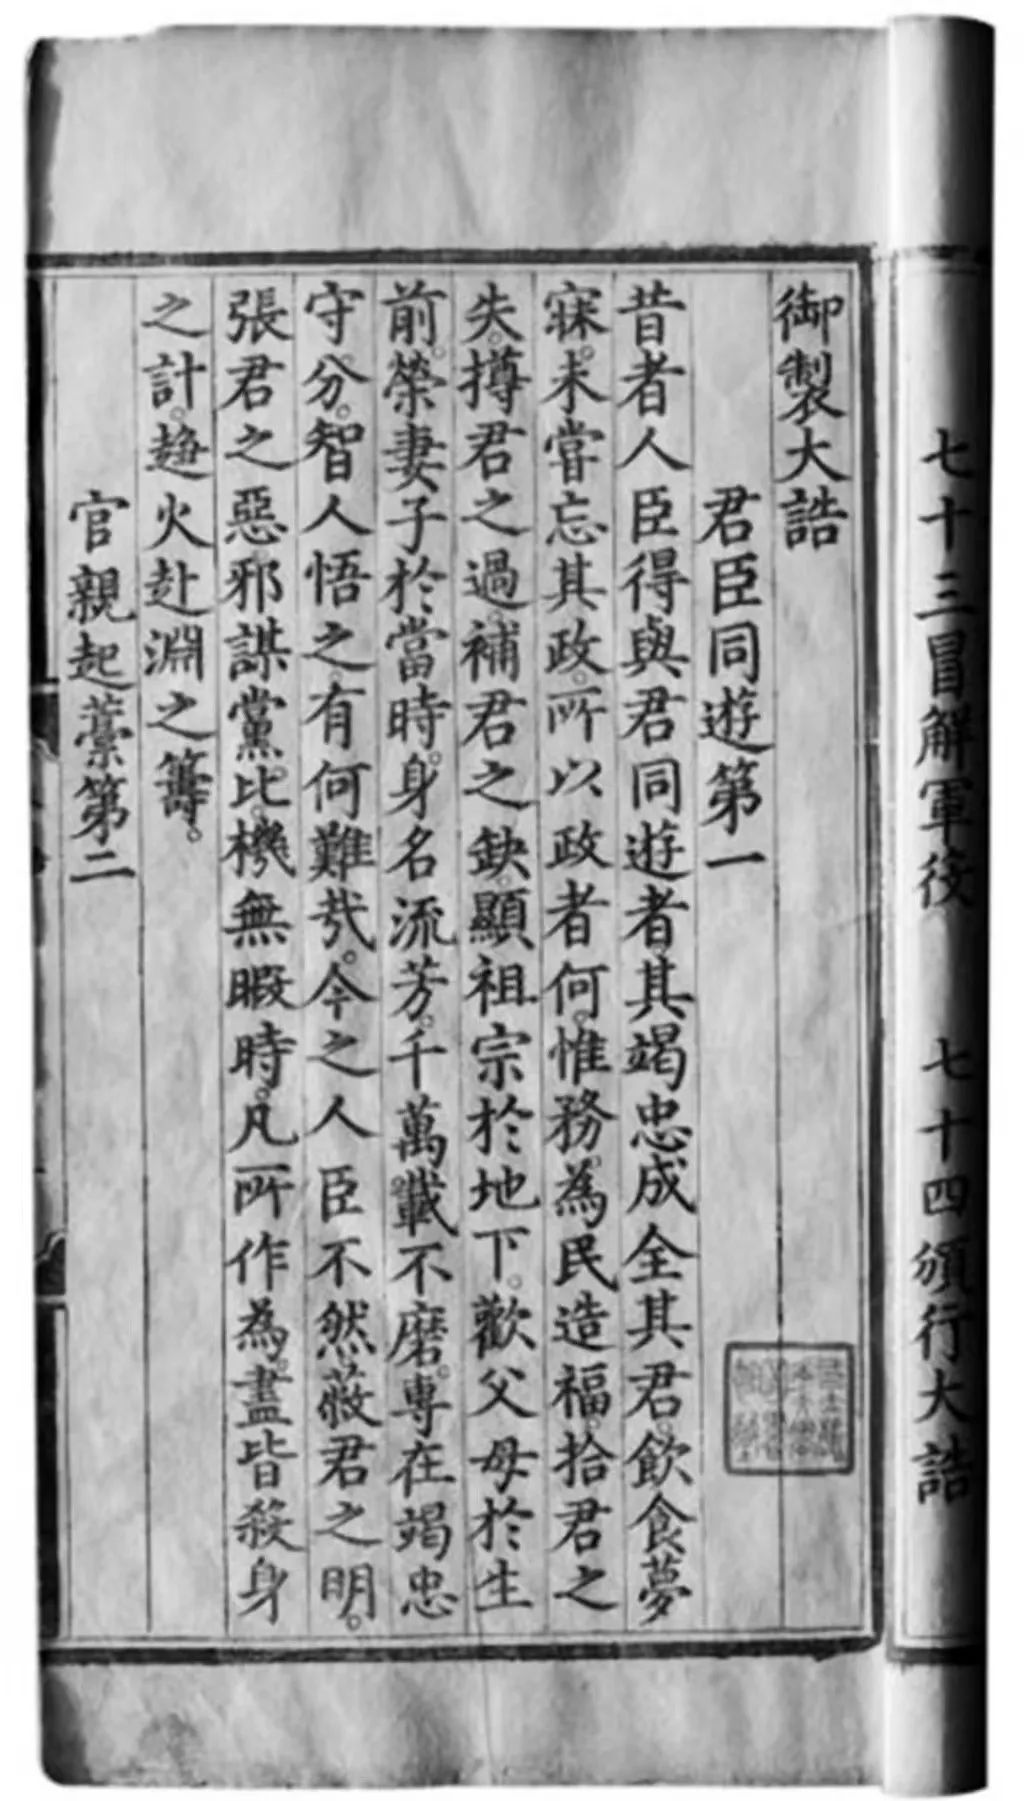 七十三冒解軍役　七十四頒行大誥
御製大誥
君臣同遊第一
昔者人臣得與君同遊者其竭忠成全其君。飲食夢
寐。未嘗忘其政。所以政者何。惟務。為民造福。拾君之
失。撙君之過。補君之缺。顯祖宗於地下。歡父母於生
前。榮妻子於當時。身名流芳。千萬載不磨。專在竭忠
守分。智人悟之。有何難哉。今之人臣不然。蔽君之明。
張君之惡。邪謀黨比。機無暇時。凡所作為。盡皆殺身
之計。趨火赴淵之籌。
官親起藁第二